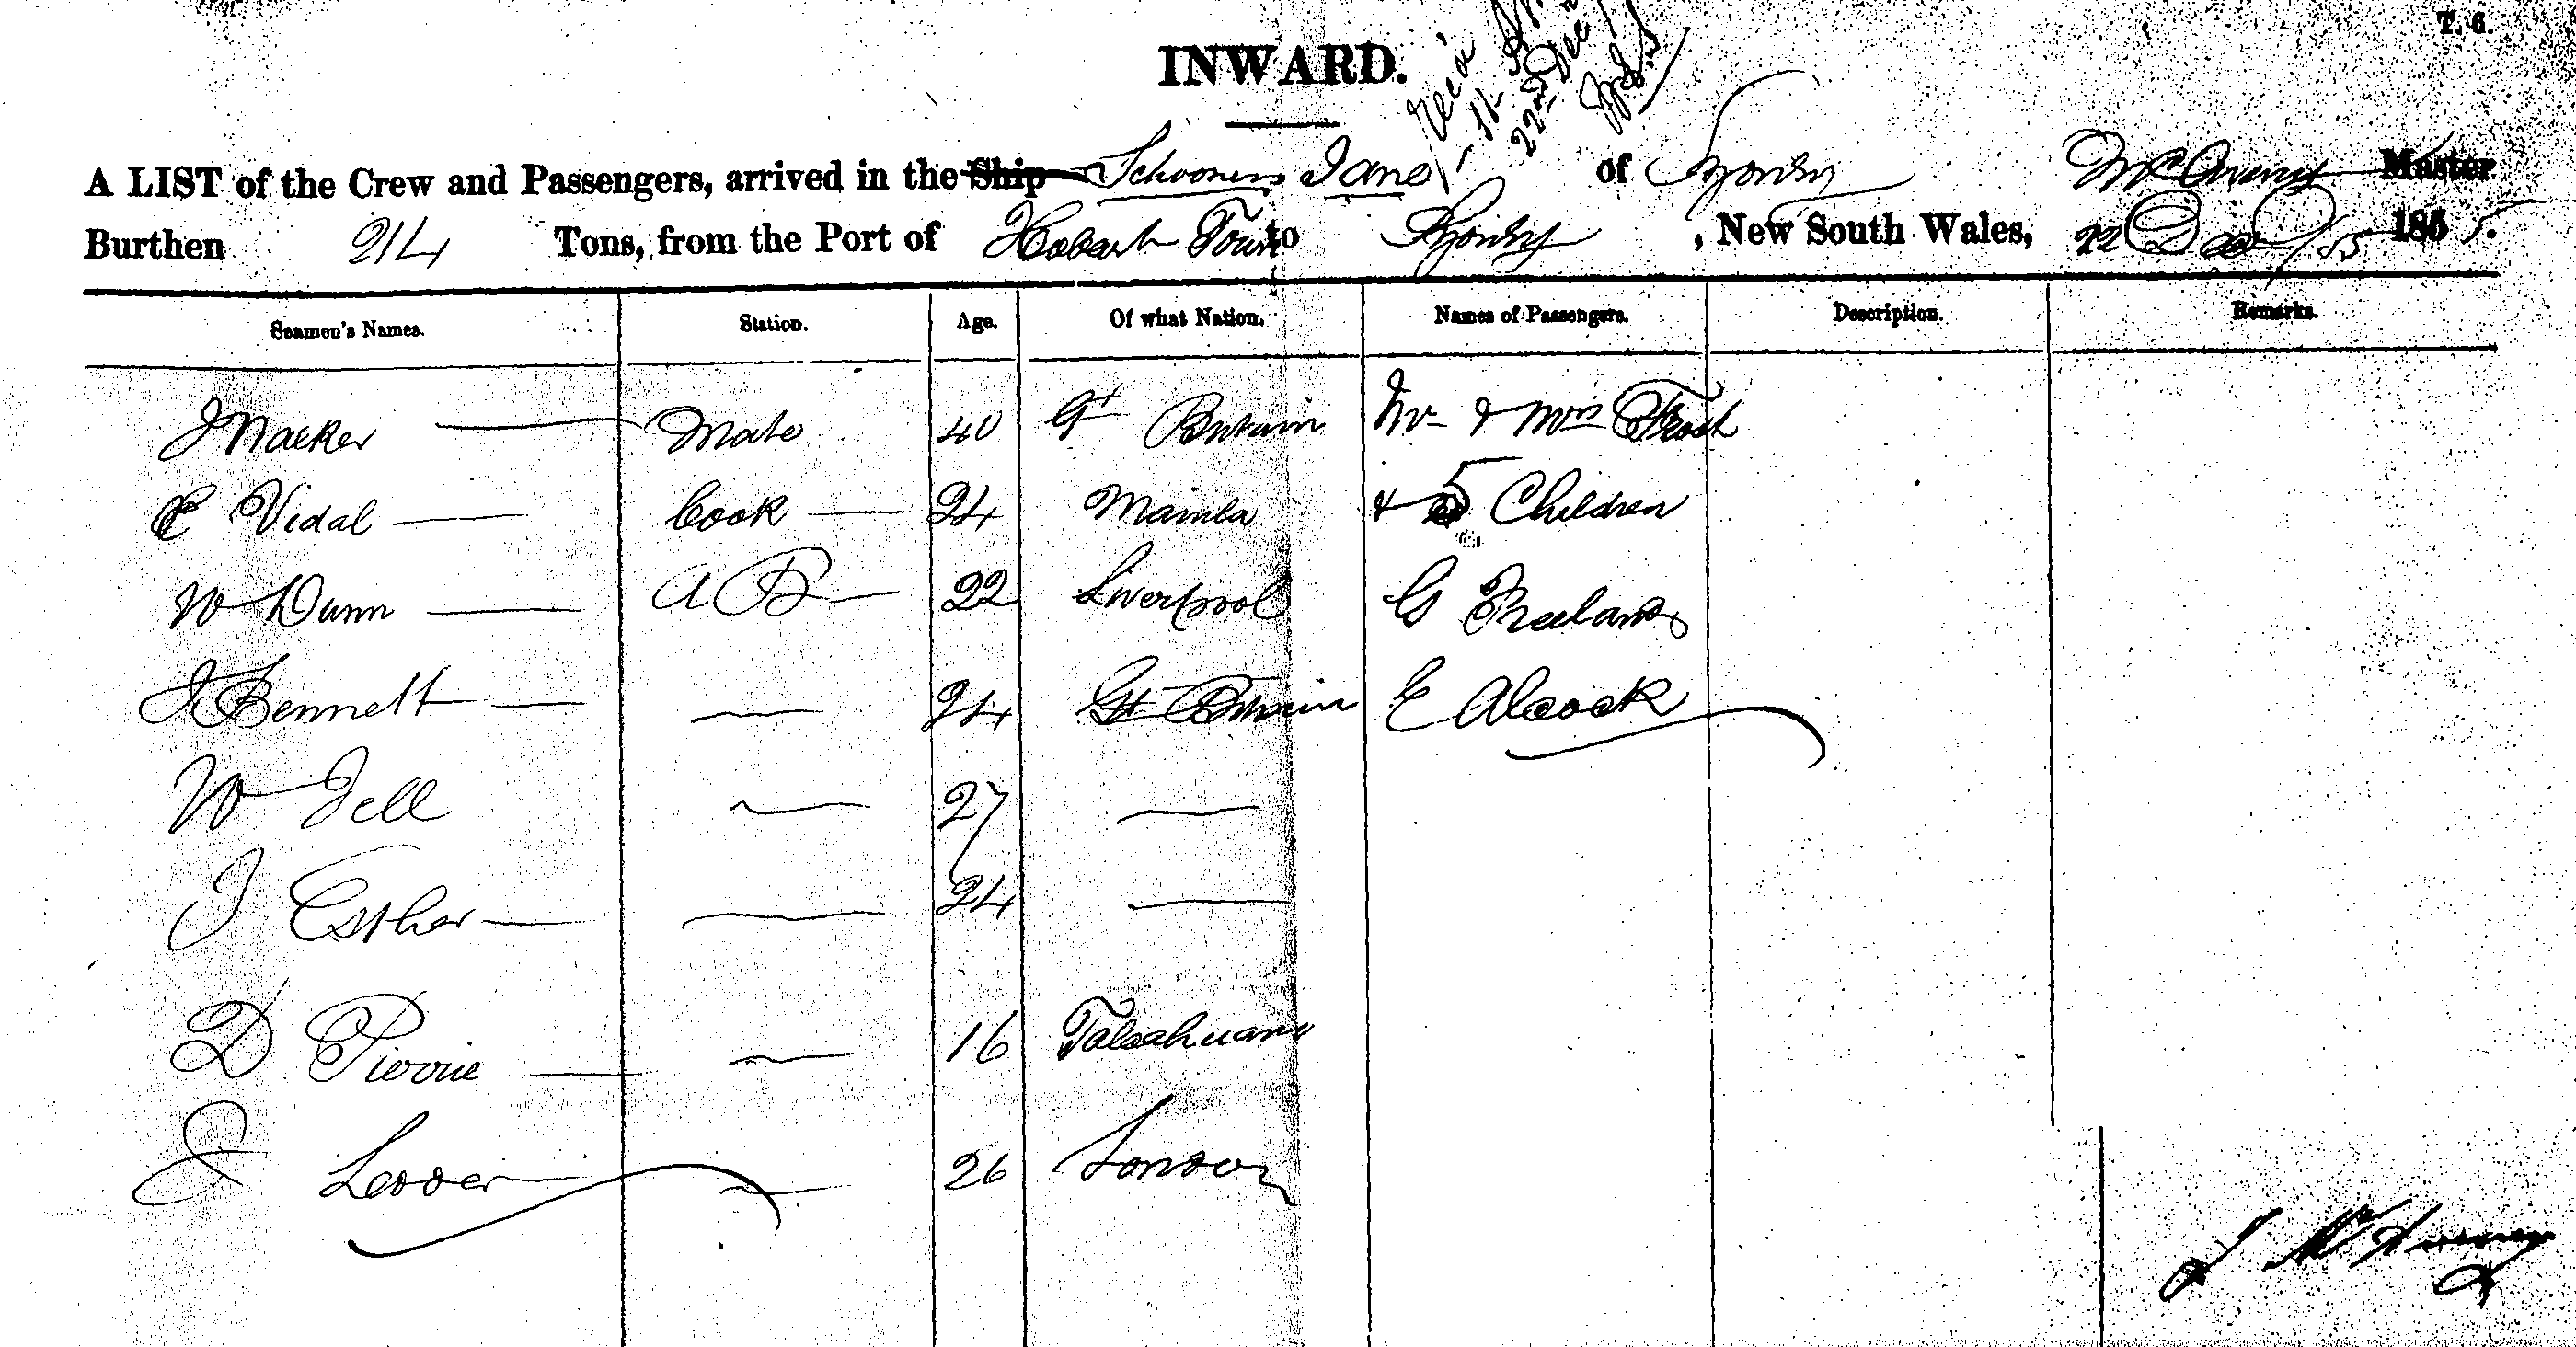 T. 6.
INWARD.
Rec'd
22nd Dec
A LIST of the Crew and Passengers, arrived in the Ship Schooner Jane of Sydney Master
Burthen 214 Tons, from the Port of Hobart Town to Sydney, New South Wales, 22 Dec /55 1855.
Seamen's Names. Station. Age. Of what Nation. Names of Passengers. Description. Remarks.
Mate 40 Gt Britain Mr & Mrs Frost
E Vidal Cook 24 Manila & 5 Children
W Dunn A B 22 Liverpool G
J Bennett — 24 Gt Britain E Alcock
W Jell — 27 —
J Esther — 24 —
D Pierrie — 16 Talcahuano
J — 26 London